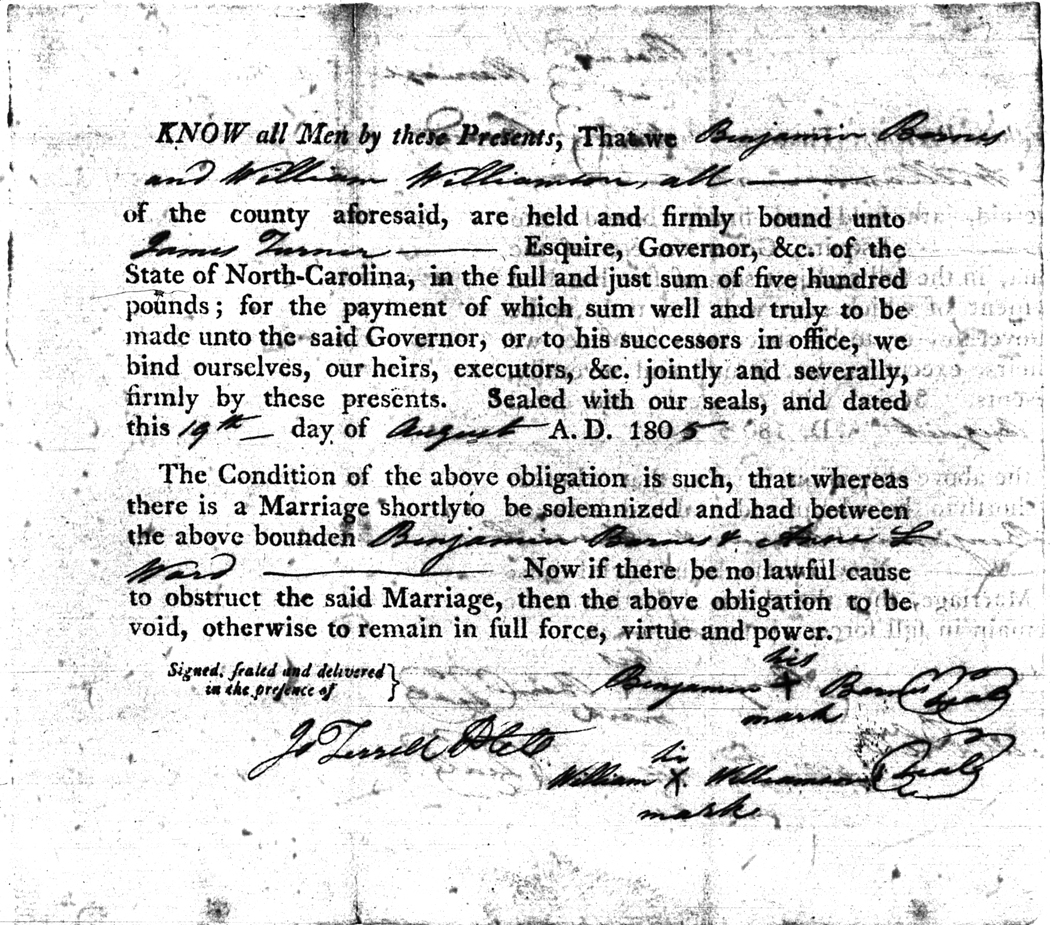 KNOW all Men by these Presents, That we Benjamin Barnes
and William Williamson, all
of the county aforesaid, are held and firmly bound unto
James Turner Esquire, Governor, &c. of the
State of North-Carolina, in the full and just sum of five hundred
pounds; for the payment of which sum well and truly to be
made unto the said Governor, or to his successors in office, we
bind ourselves, our heirs, executors, &c. jointly and severally,
firmly by these presents. Sealed with our seals, and dated
this 19th day of August A. D. 1805
The Condition of the above obligation is such, that whereas
there is a Marriage shortly to be solemnized and had between
the above bounden Benjamin Barnes & Anne L
Ward Now if there be no lawful cause
to obstruct the said Marriage, then the above obligation to be
void, otherwise to remain in full force, virtue and power.
Signed, sealed and delivered
in the presence of
his
Benjamin X Barnes (seal)
mark
Jo Terrell
his
William X Williamson (seal)
mark